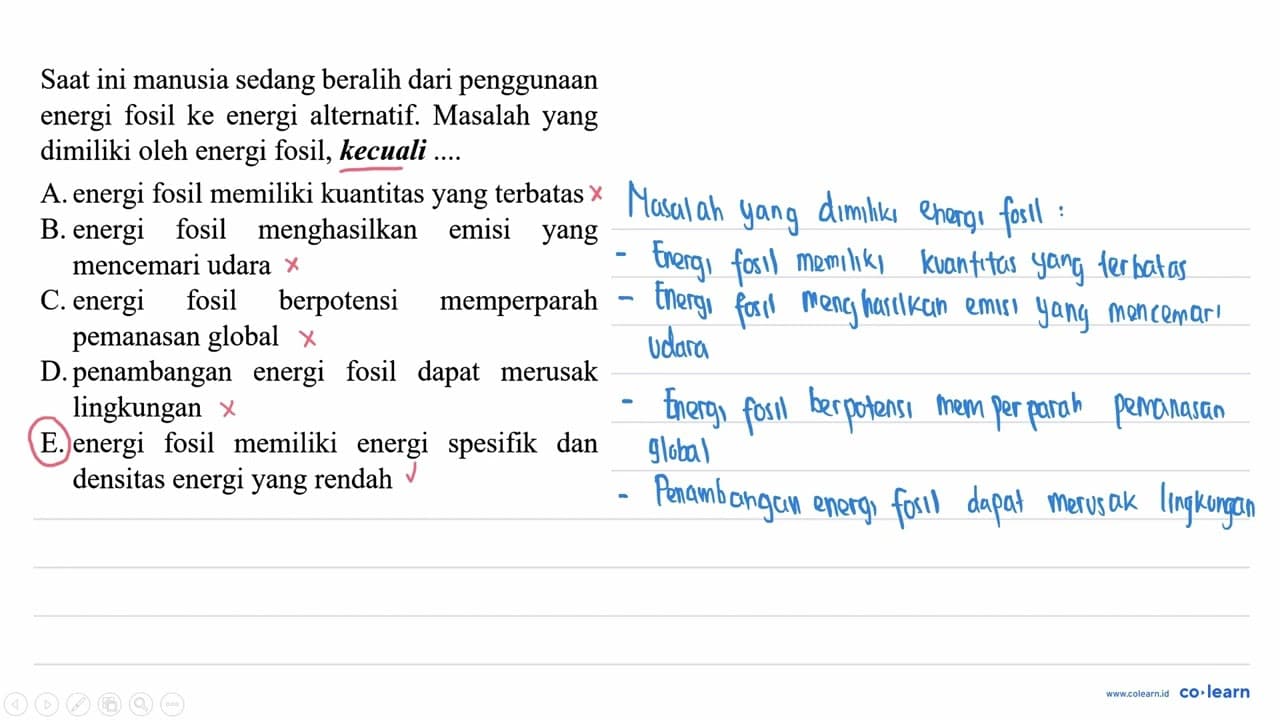 Saat ini manusia sedang beralih dari penggunaan
energi fosil ke energi alternatif. Masalah yang
dimiliki oleh energi fosil, kecuali ....
A. energi fosil memiliki kuantitas yang terbatas
B. energi fosil menghasilkan emisi yang
mencemari udara
C. energi fosil berpotensi memperparah
pemanasan global
D. penambangan energi fosil dapat merusak
lingkungan
E. energi fosil memiliki energi spesifik dan
densitas energi yang rendah
Masalah yang dimiliki energi fosil :
- Energi fosil memiliki kuantitas yang terbatas
- Energi fosil menghasilkan emisi yang mencemari
udara
- Energi fosil berpotensi memperparah pemanasan
global
- Penambangan energi fosil dapat merusak lingkungan
www.colearn.id co·learn